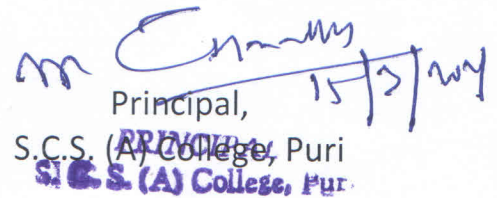 15/3/2021
Principal,
S.C.S. (A) College, Puri
PRINCIPAL
S. C. S. (A) College, Puri